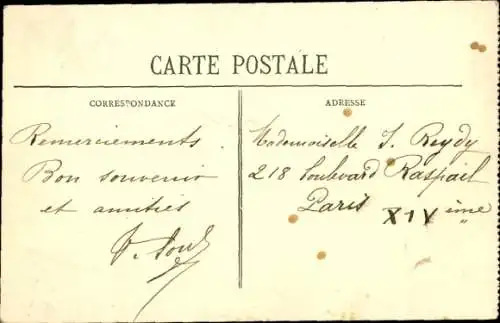 CARTE POSTALE
CORRESPONDANCE
ADRESSE
Remerciements.
Bon souvenir
et amitiés
Mademoiselle J. Reydy
218 boulevard Raspail
Paris XIV ème